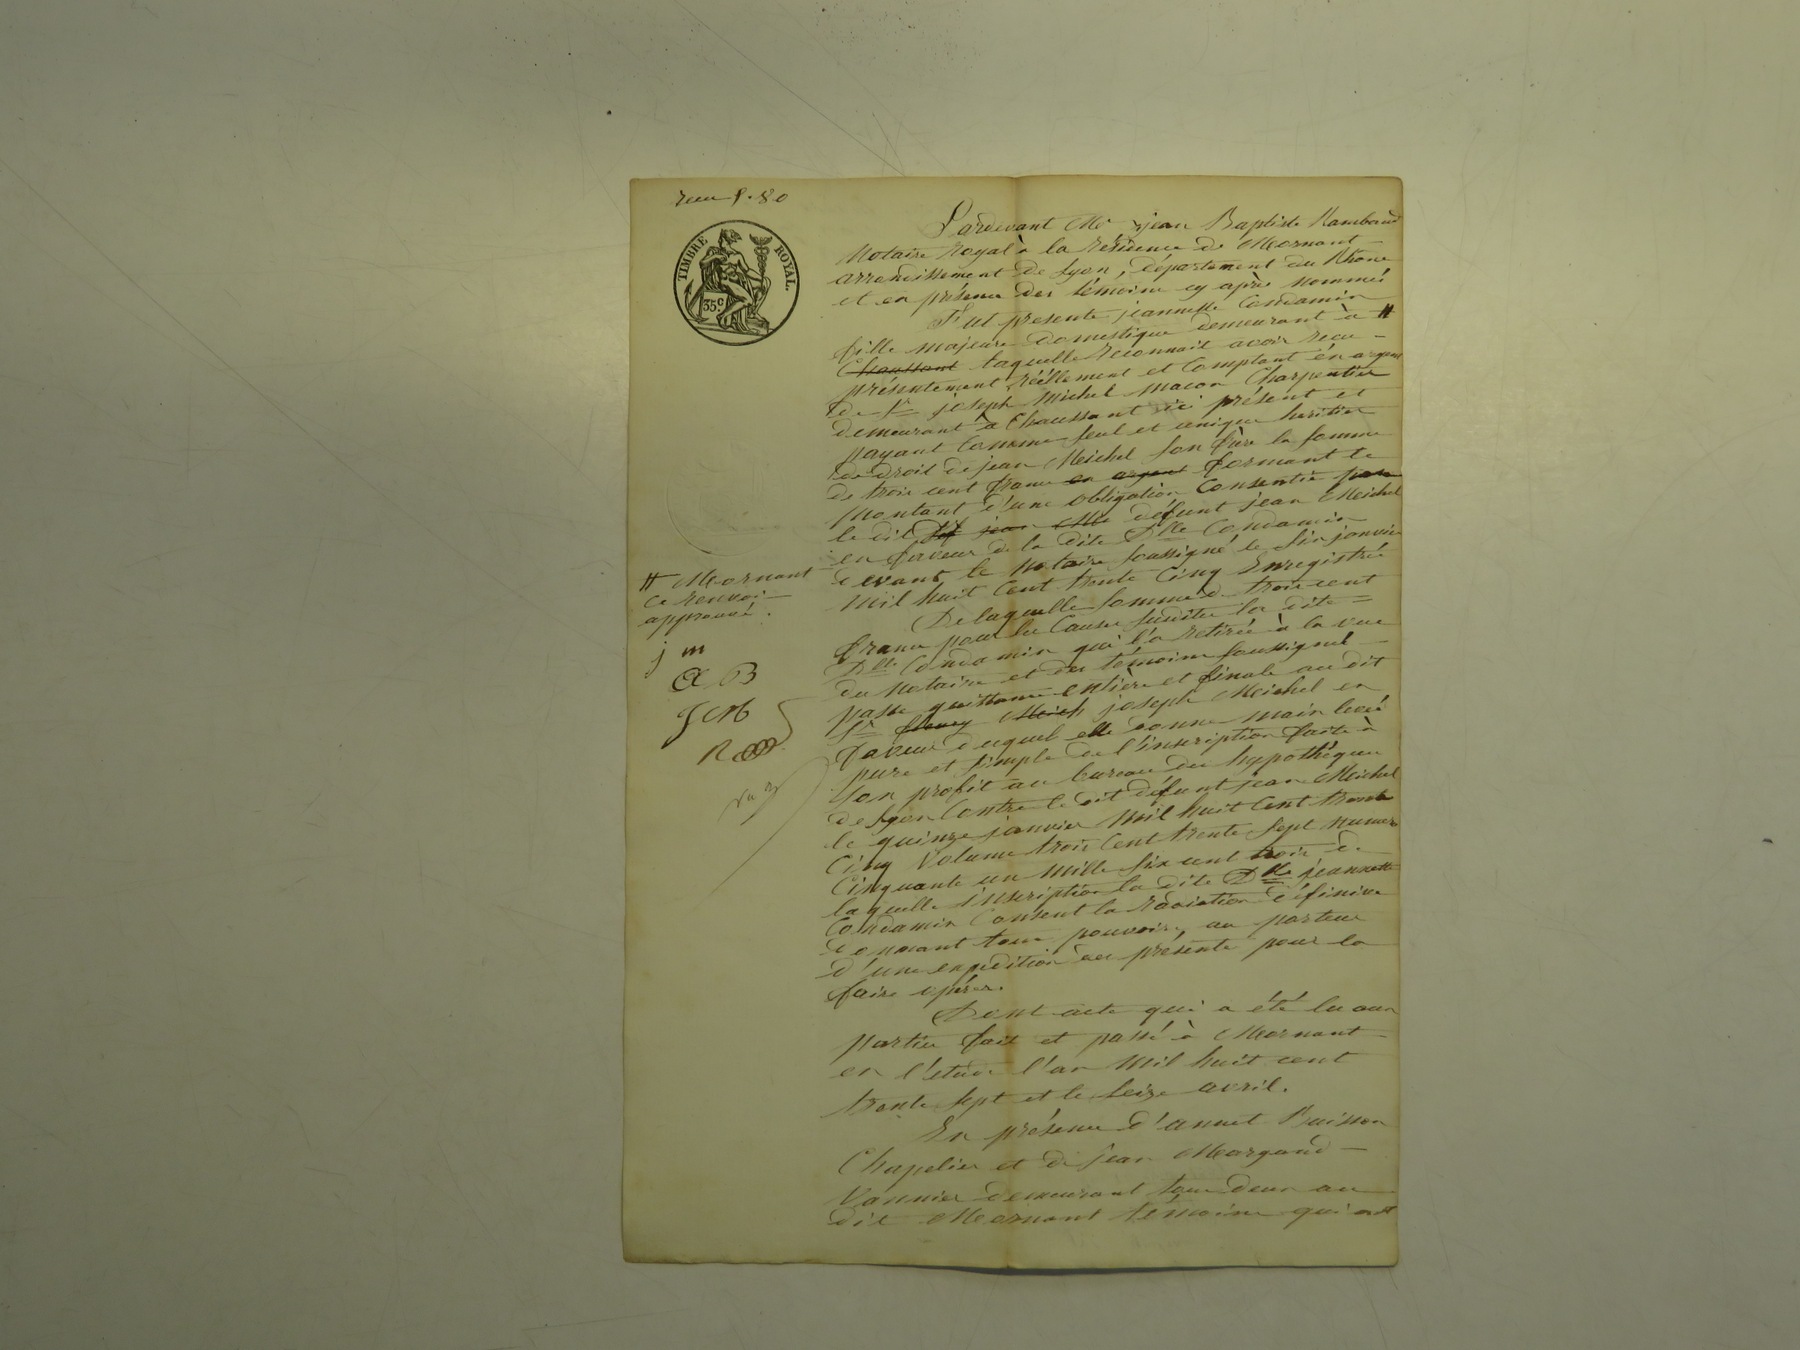 TIMBRE ROYAL.
35 c
Pardevant Me jean Baptiste Rambaud
Notaire Royal à la résidence de Mornant
arrondissement de Lyon, département du Rhône
et en présence des témoins cy après nommés
Fut presente jeannette Condamin
fille majeure domestique demeurant à #
Chaussant laquelle reconnait avoir recu
présentement réellement et Comptant en argent
de Sr joseph Michel macon Charpentier
demeurant à Chaussant ici présent et
payant Comme seul et unique héritier
de droit de jean Michel son frère la somme
de trois cent francs en argent formant le
montant d'une obligation Consentie par
le dit jean défunt jean Michel
en faveur de la dite Dlle Condamin
devant le Notaire soussigné le six janvier
Mil huit Cent trente Cinq Enregistrée
De laquelle somme de trois cent
francs pour les Causes susdites la dite
Dlle Condamin qui l'a retirée à la vue
du Notaire et des témoins soussignés
passe quittance entière et finale au dit
Sr joseph Michel en
faveur duquel elle donne main levée
pure et simple de l'inscription faite à
son profit au bureau des hypothèques
de Lyon Contre le dit défunt jean Michel
le quinze janvier Mil huit Cent trente
Cinq Volume trois Cent trente sept numero
Cinquante un Mille six cent trois de
laquelle inscription la dite Dlle jeannette
Condamin Consent la radiation définive
donnant tous pouvoirs, au porteur
d'une expédition des présente pour la
faire opérer.
Dont acte qui a été lu aux
parties fait et passé à Mornant
en l'étude l'an Mil huit cent
trente sept et le seize avril.
En présence d'annet Buisson
Chapelier et de jean Margand
Vannier demeurant tous deux au
dit Mornant témoins qui ont
# Mornant
Ce renvoi
approuvé.
j m
a B
J M
R